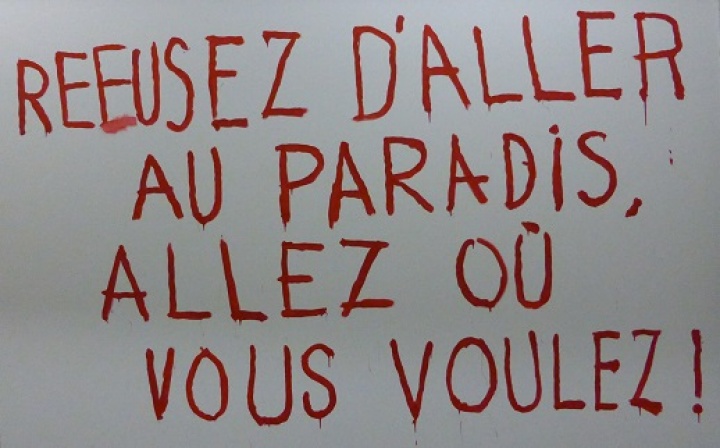 REFUSEZ D'ALLER
AU PARADIS,
ALLEZ OÙ
VOUS VOULEZ!